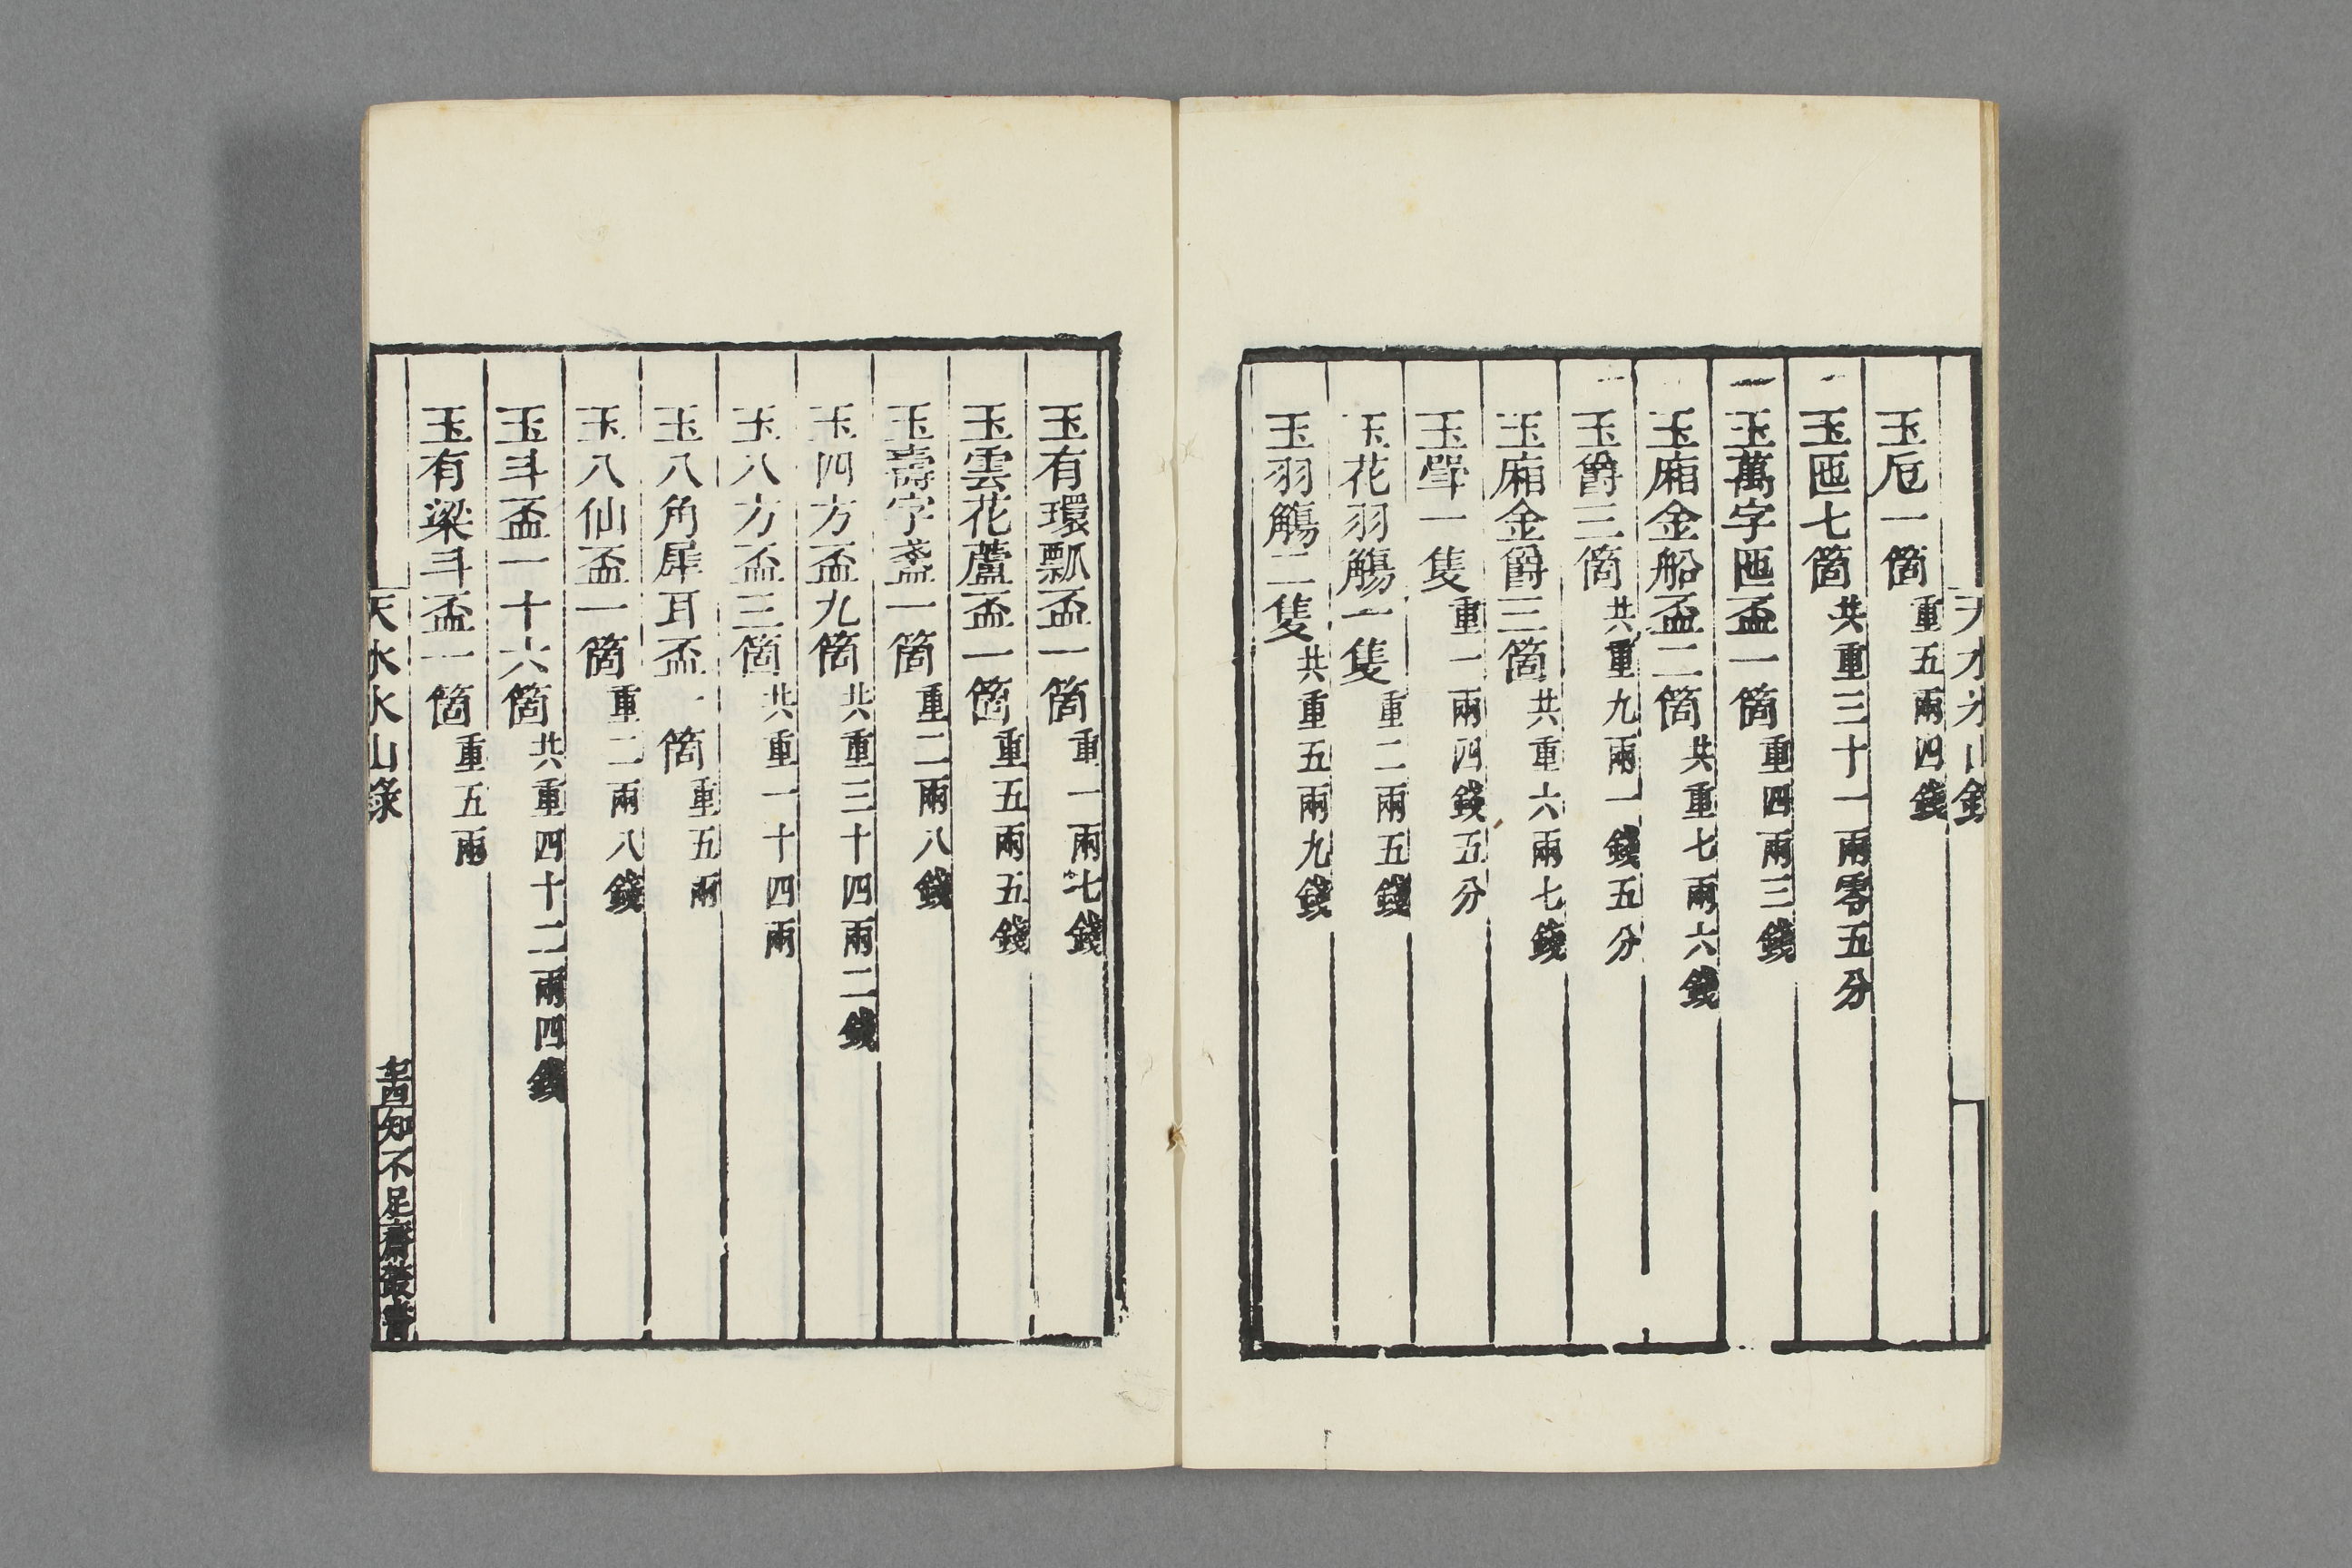 天水冰山錄
玉卮一箇重五兩四錢
玉匜七箇共重三十一兩零五分
玉萬字匜盃一箇重四兩三錢
玉廂金船盃二箇共重七兩六錢
玉爵三箇共重九兩一錢五分
玉廂金爵三箇共重六兩七錢
玉斝一隻重一兩四錢五分
玉花羽觴一隻重二兩五錢
玉羽觴二隻共重五兩九錢
玉有環瓢盃一箇重一兩七錢
玉雲花蘆盃一箇重五兩五錢
玉壽字盞一箇重二兩八錢
玉四方盃九箇共重三十四兩二錢
玉八方盃三箇共重一十四兩
玉八角犀耳盃一箇重五兩
玉八仙盃一箇重二兩八錢
玉斗盃一十六箇共重四十二兩四錢
玉有梁斗盃一箇重五兩
天水冰山錄
知不足齋叢書